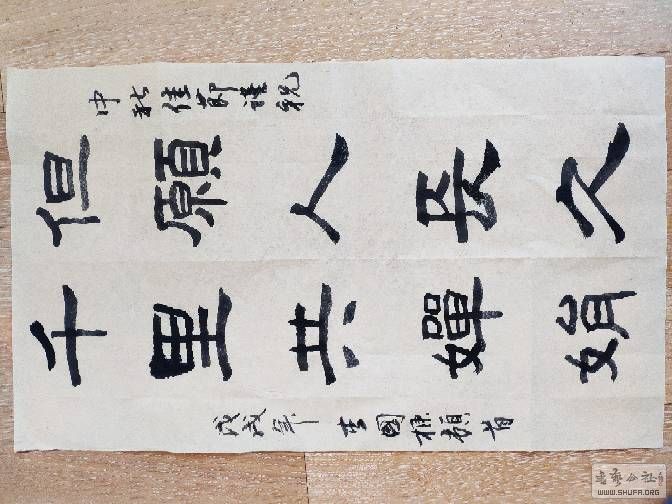 中秋佳節謹祝
但願人長久
千里共嬋娟
戊戌年李國標頓首
书艺公社
WWW.SHUFA.ORG